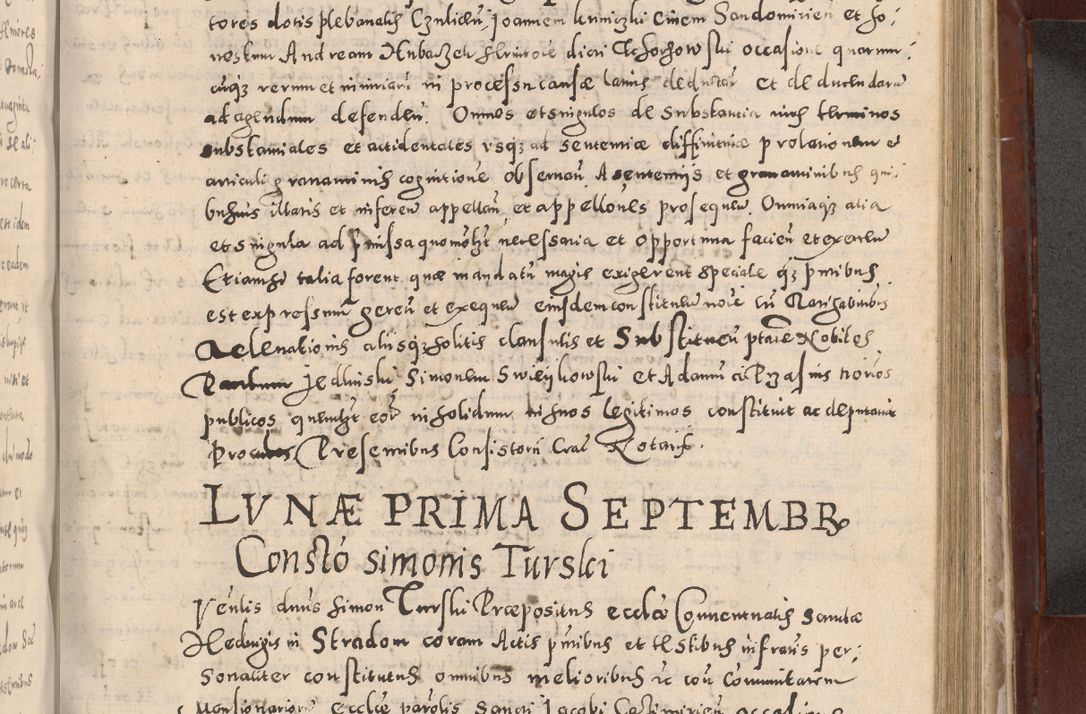 tores dotis plebanalis Joannem Civem Sandomirien et Ho:
nestum Andream dicti occasione quarum:
cunqz rerum et iniuriarum in processu causæ latius deductar et deducendarum
ad agendum defenden. Omnes et singulos de substantia iuris terminos
substantiales et accidentales vsqz ad sententiæ diffinitivæ prolationem et
articuli gravaminis cognitione observan. A sententijs et gravaminibus qui:
busvis illatis et inferen appellan, et appellones prosequen. Omniaqz alia
et singula ad præmissa quomolbt necessaria et opportuna facien et exercen
Etiamsi talia forent quæ mandatu magis exigerent speciale qz pntibus
est expressum geren et exequen eiusdem constituen noie cu Ratihabitionis
Relevationis aliisqz solitis clausulis et Substituen ptate Nobiles
Paulum Jedlinski Simonem Swiejkowski et Adamu notrios
publicos quemlbt eor in solidum in suos legitimos constituit ac deputavit
Procures Presentibus Consistorii Crac Notariis.
LVNÆ PRIMA SEPTEMBR
Constó simonis Turski
Venlis dnus Simon Turski Præpositus eccliæ Conventualis Sanctæ
Hedvigis in Stradom coram Actis pntibus et testibus infraris per:
sonaliter constitutus omnibus melioribus ic con Communitatem
Mansionarior Eccliæ parolis Sancti Jacobi Casimirien occasione